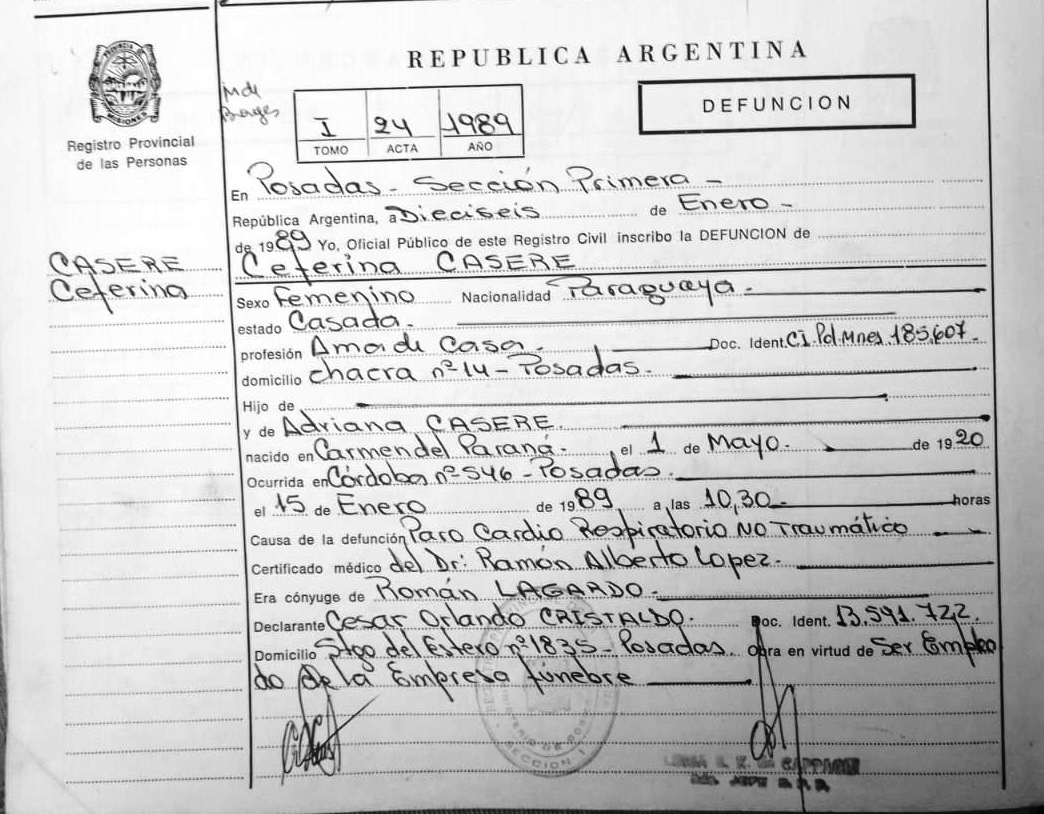 PROVINCIA DE MISIONES
Registro Provincial
de las Personas
REPUBLICA ARGENTINA
DEFUNCION
I 24 1989
TOMO ACTA AÑO
En Posadas - Sección Primera -
República Argentina, a Dieciseis de Enero -
de 1989 Yo, Oficial Público de este Registro Civil inscribo la DEFUNCION de
CASERE
Ceferina
Ceferina CASERE
Sexo Femenino Nacionalidad Paraguaya -
estado Casada.
profesión Ama de Casa. Doc. Ident. CI. Pol. Mnes 185.607 -
domicilio chacra nº 14 - Posadas.
Hijo de
y de Adriana CASERE.
nacido en Carmen del Paraná. el 1 de Mayo. de 1920
Ocurrida en Córdoba nº 546 - Posadas.
el 15 de Enero de 1989 a las 10,30 horas
Causa de la defunción Paro Cardio Respiratorio NO Traumático
Certificado médico del Dr: Ramón Alberto Lopez.
Era cónyuge de Román LAGARDO.
Declarante Cesar Orlando CRISTALDO. Doc. Ident. 13.591.722.
Domicilio Stgo del Estero nº 1835 - Posadas. Obra en virtud de Ser Emplea
do de la Empresa funebre